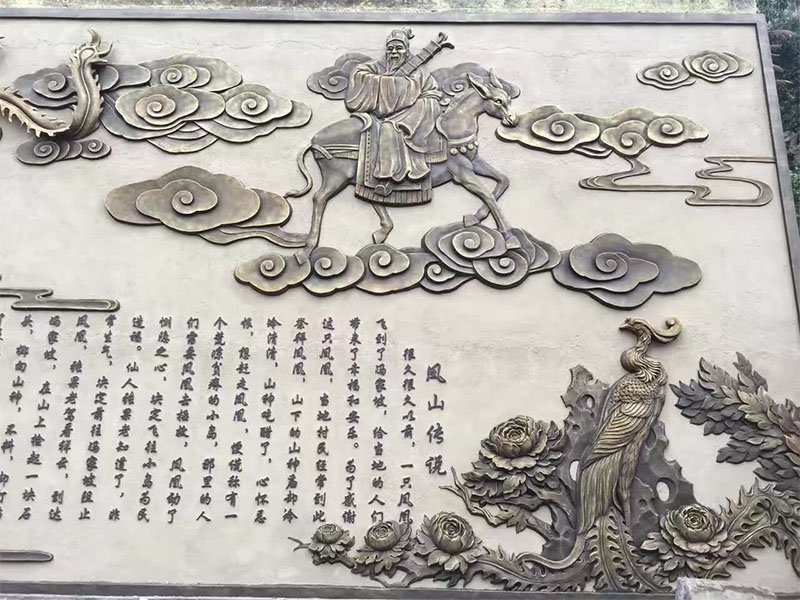 凤山传说
很久很久以前，一只凤凰
飞到了冯家坡，给当地的人们
带来了幸福和安乐。为了感谢
这只凤凰，当地村民经常到此
祭拜凤凰，山下的山神庙却冷
冷清清，山神吃醋了，心怀忌
恨，想赶走凤凰，便谎称有一
个荒凉贫瘠的小岛，那里的人
们需要凤凰去拯救，凤凰动了
恻隐之心，决定飞往小岛为民
造福。仙人张果老知道了，非
常生气，决定前往冯家坡阻止
凤凰，张果老驾着祥云，到达
冯家坡，在山上捡起一块石
头，掷向山神，不料，却打